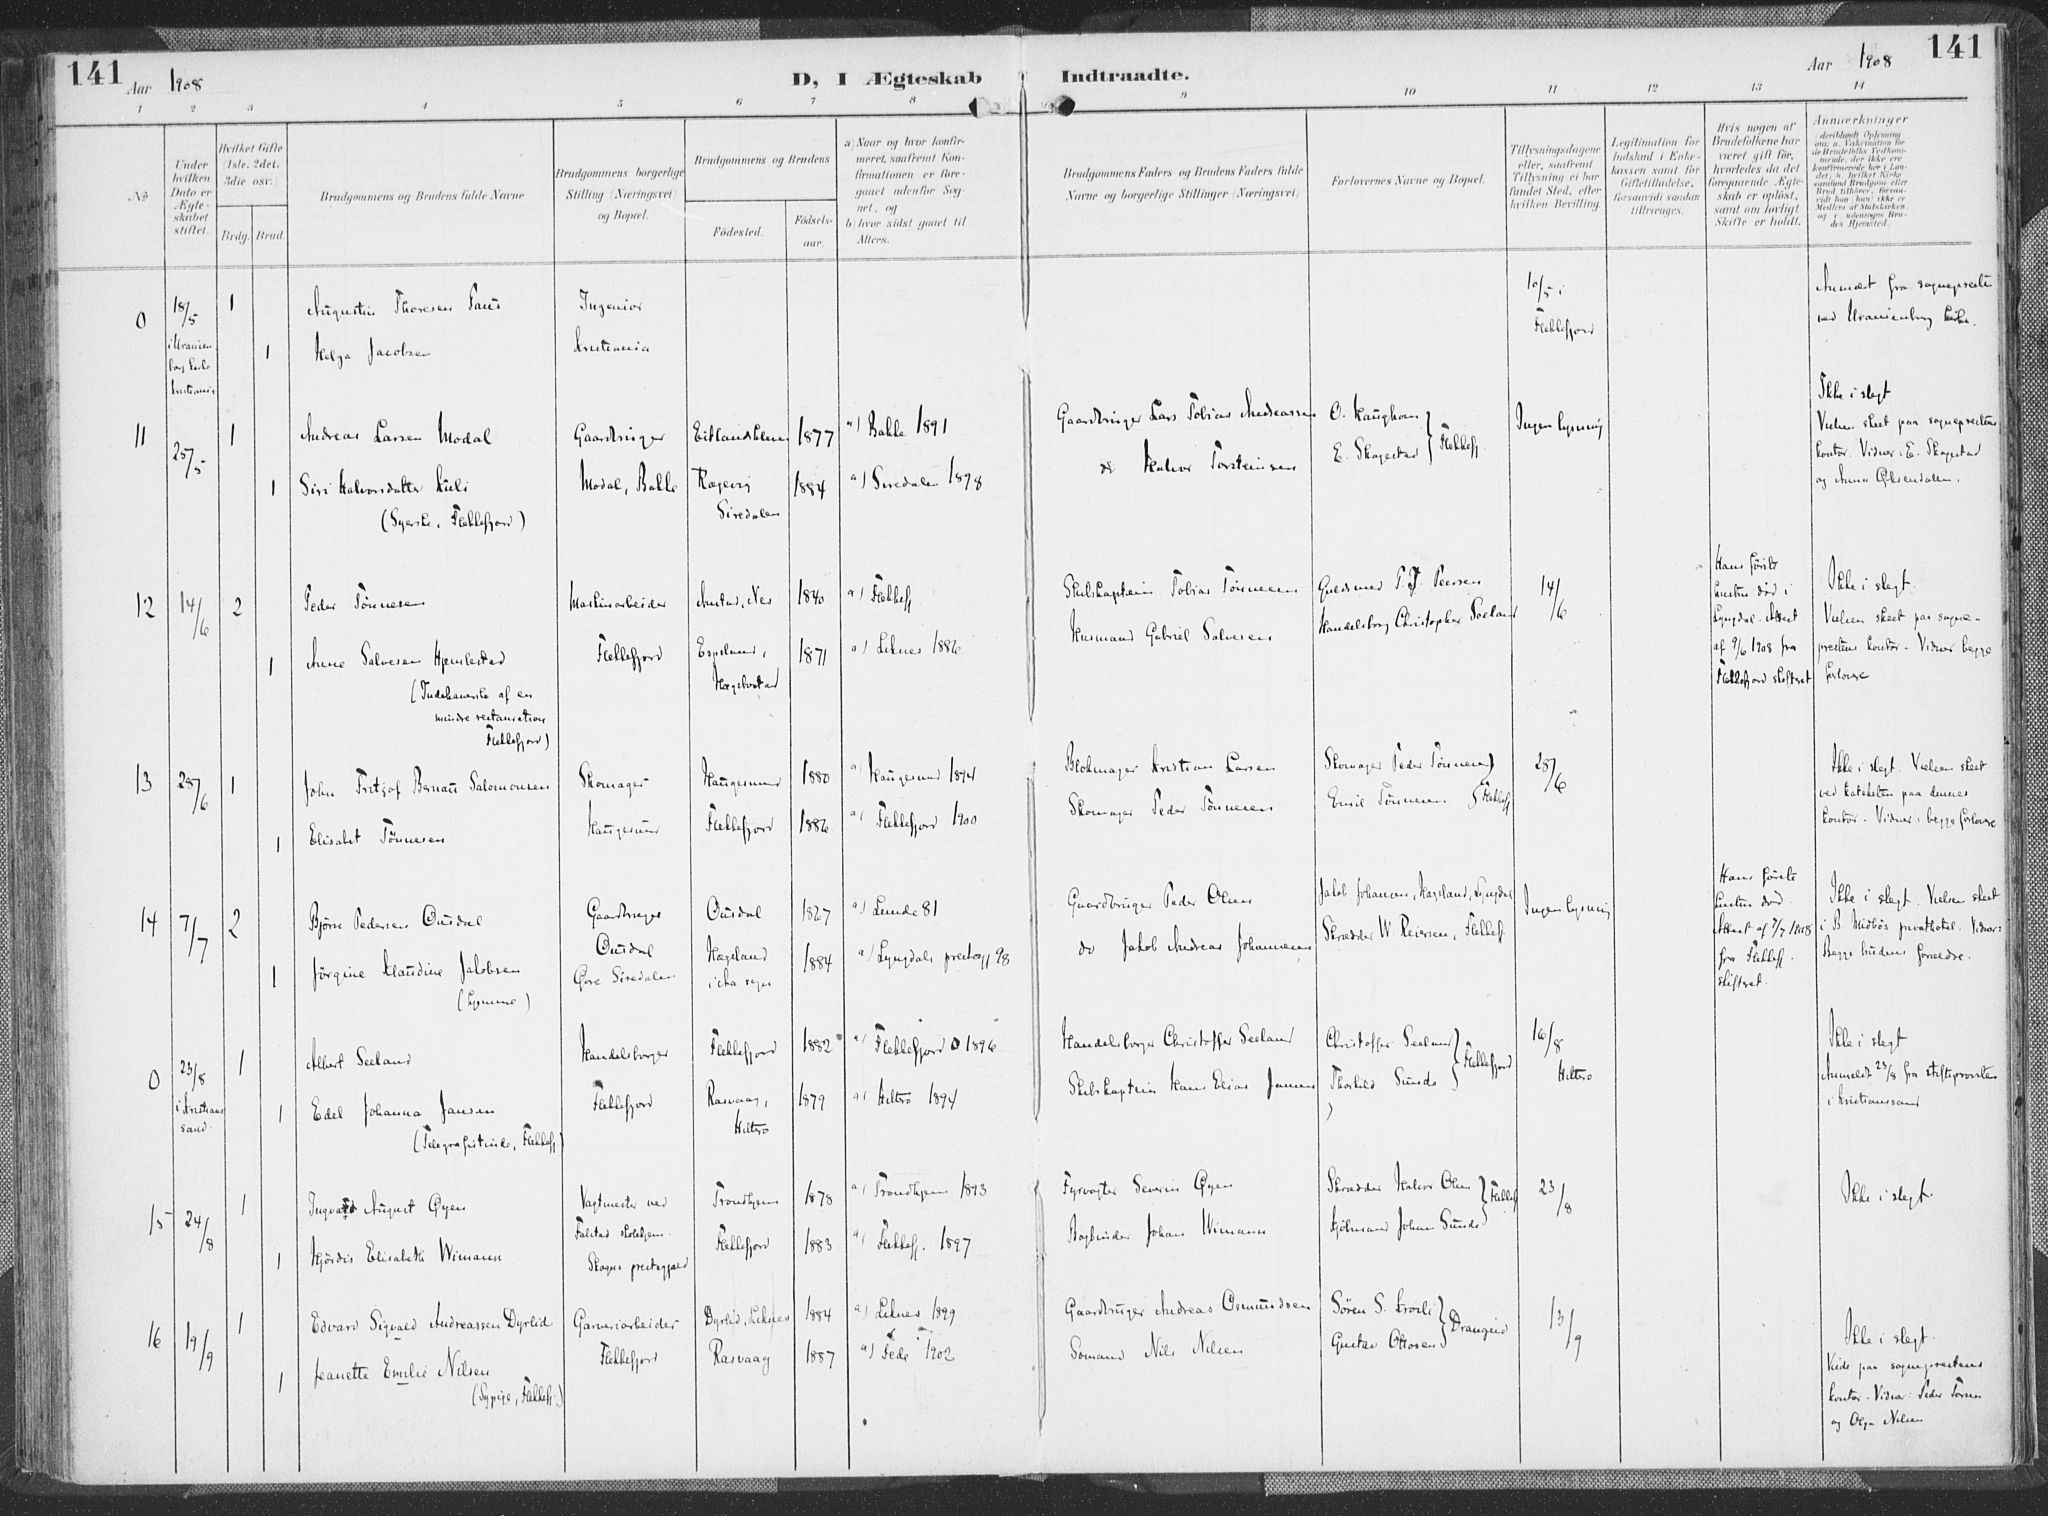 141 Aar 1908 D, I Ægteskab Indtraadte. Aar 1908 141
1 2 3 4 5 6 7 8 9 10 11 12 13 14
No
Under hvilken Dato er Ægteskabet stiftet.
Hvilket Gifte (1ste, 2det, 3die osv.)
Brdg. Brud.
Brudgommens og Brudens fulde Navne
Brudgommens borgerlige Stilling (Næringsvei) og Bopæl.
Brudgommens og Brudens
Födested. Födselsaar.
a) Naar og hvor konfirmeret, saafremt Konfirmationen er foregaaet udenfor Sognet, og
b) hvor sidst gaaet til Alters.
Brudgommens Faders og Brudens Faders fulde Navne og borgerlige Stillinger (Næringsvei)
Forlovernes Navne og Bopæl.
Tillysningsdagene eller, saafremt Tillysning ei har fundet Sted, efter hvilken Bevilling.
Legitimation for Indskud i Enkekassen samt for Giftetilladelse, forsaavidt saadan tiltrænges.
Hvis nogen af Brudefolkene har været gift før, hvorledes da det foregaaende Ægteskab er oplöst, samt om lovligt Skifte er holdt.
Anmærkninger
0 18/5 1 Augustin Thoresen Paus Ingeniør 10/5 i Flekkefjord
1 Helga Jacobsen Kristiania
Anmeldt fra sognepresten ved Uranienborg kirke.
11 25/5 1 Andreas Larsen Modal Gaardbruger 1877 a) Bakke 1891 Gaardbruger Lars Tobias Andreassen Ingen lysning
1 Siri Halvorsdatter Modal, Bakke Siredalen 1884 a) Siredalen 1898 do Halvor Torsteinsen E. Skagestad Flekkefj.
(Syerske, Flekkefjord)
Ikke i slegt
Vielsen skeet paa sogneprestens kontor. Vidner: E. Skagestad og Anna
12 14/6 2 Peder Tönnesen Maskinarbeider 1840 a) Flekkefj Skibskaptein Tobias Tönnesen 14/6
1 Anne Salvesen Flekkefjord Hægebostad 1871 a) Liknes 1886 Husmand Gabriel Salvesen
(Indehaverske af en mindre restauration Flekkefjord)
Hans første hustru död i Lyngdal. Attest af 9/6 1908 fra Flekkefjord skifteret
Ikke i slegt.
Vielsen skeet paa sogneprestens kontor. Vidner begge forlovere
13 28/6 1 John Fritjof Bernau Salomonsen Skomager Haugesund 1880 a) Haugesund 1894 Blokmager Kristian Larsen Skomager Peder Tönnesen 28/6
1 Elisabet Tönnesen Haugesund Flekkefjord 1886 a) Flekkefjord 1900 Skomager Peder Tönnesen Emil Tönnesen Flekkefj
Ikke i slegt. Vielsen skeet ved kateketen paa dennes kontor. Vidner: begge forlovere
14 7/7 2 Bjørn Pedersen Ousdal Gaardbruger Ousdal 1827 a) Lunde 81 Gaardbruger Peder Olsen Jakob Johansen, Hægeland, Lyngdal Ingen lysning
1 Jörgine Klaudine Jakobsen Ousdal Øvre Siredalen Hægeland 1884 a) Lyngdals prestegj 98 do Jakob Andreas Johannesen Skrædder W. Reiersen, Flekkefj.
Hans første hustru død. Attest af 7/7 1908 fra Flekkefj. skifteret.
Ikke i slegt. Vielsen skeet i B. privathotel. Vidner: Begge brudens forældre.
0 23/8 i Kristianssand. 1 Albert Seeland Handelsborger Flekkefjord 1882 a) Flekkefjord 1896 Handelsborger Christoffer Seeland Christoffer Seeland 16/8 Hitterø
1 Edel Johanna Jansen Flekkefjord Rasvaag, Hitterø 1879 a) Hitterø 1894 Skibskaptein Hans Elias Jansen Sunde Flekkefjord
(Telegrafistinde, Flekkefj)
Ikke i slegt
Anmeldt 23/8 fra stiftsprovsten i Kristianssand
15 24/8 1 Ingvald August Øyen Vagtmester ved Falstad skolehjem. Trondhjem 1878 a) Trondhjem 1893 Fyrvogter Severin Øyen Skrædder Halvor Olsen 23/8
1 Hjördis Elisabeth Wimann Skogns prestegjæld Flekkefjord 1883 a) Flekkefj. 1897 Bogbinder Johan Wimann Johan Sunde Flekkefj
Ikke i slegt.
16 19/9 1 Edvard Sigvald Andreassen Dyrlid Garveriarbeider Dyrlid, Liknes 1884 a) Liknes 1899 Gaardbruger Andreas Osmundsen Sören S. 13/9
1 Jeanette Emilie Nilsen Flekkefjord Rasvaag 1887 a) Fede 1902 Sömand Nils Nilsen Gustav Ottosen Drangeid
(Sypige, Flekkefj.)
Ikke i slegt.
Viede paa sogneprestens kontor. Vidner: Peder og Olga Nilsen